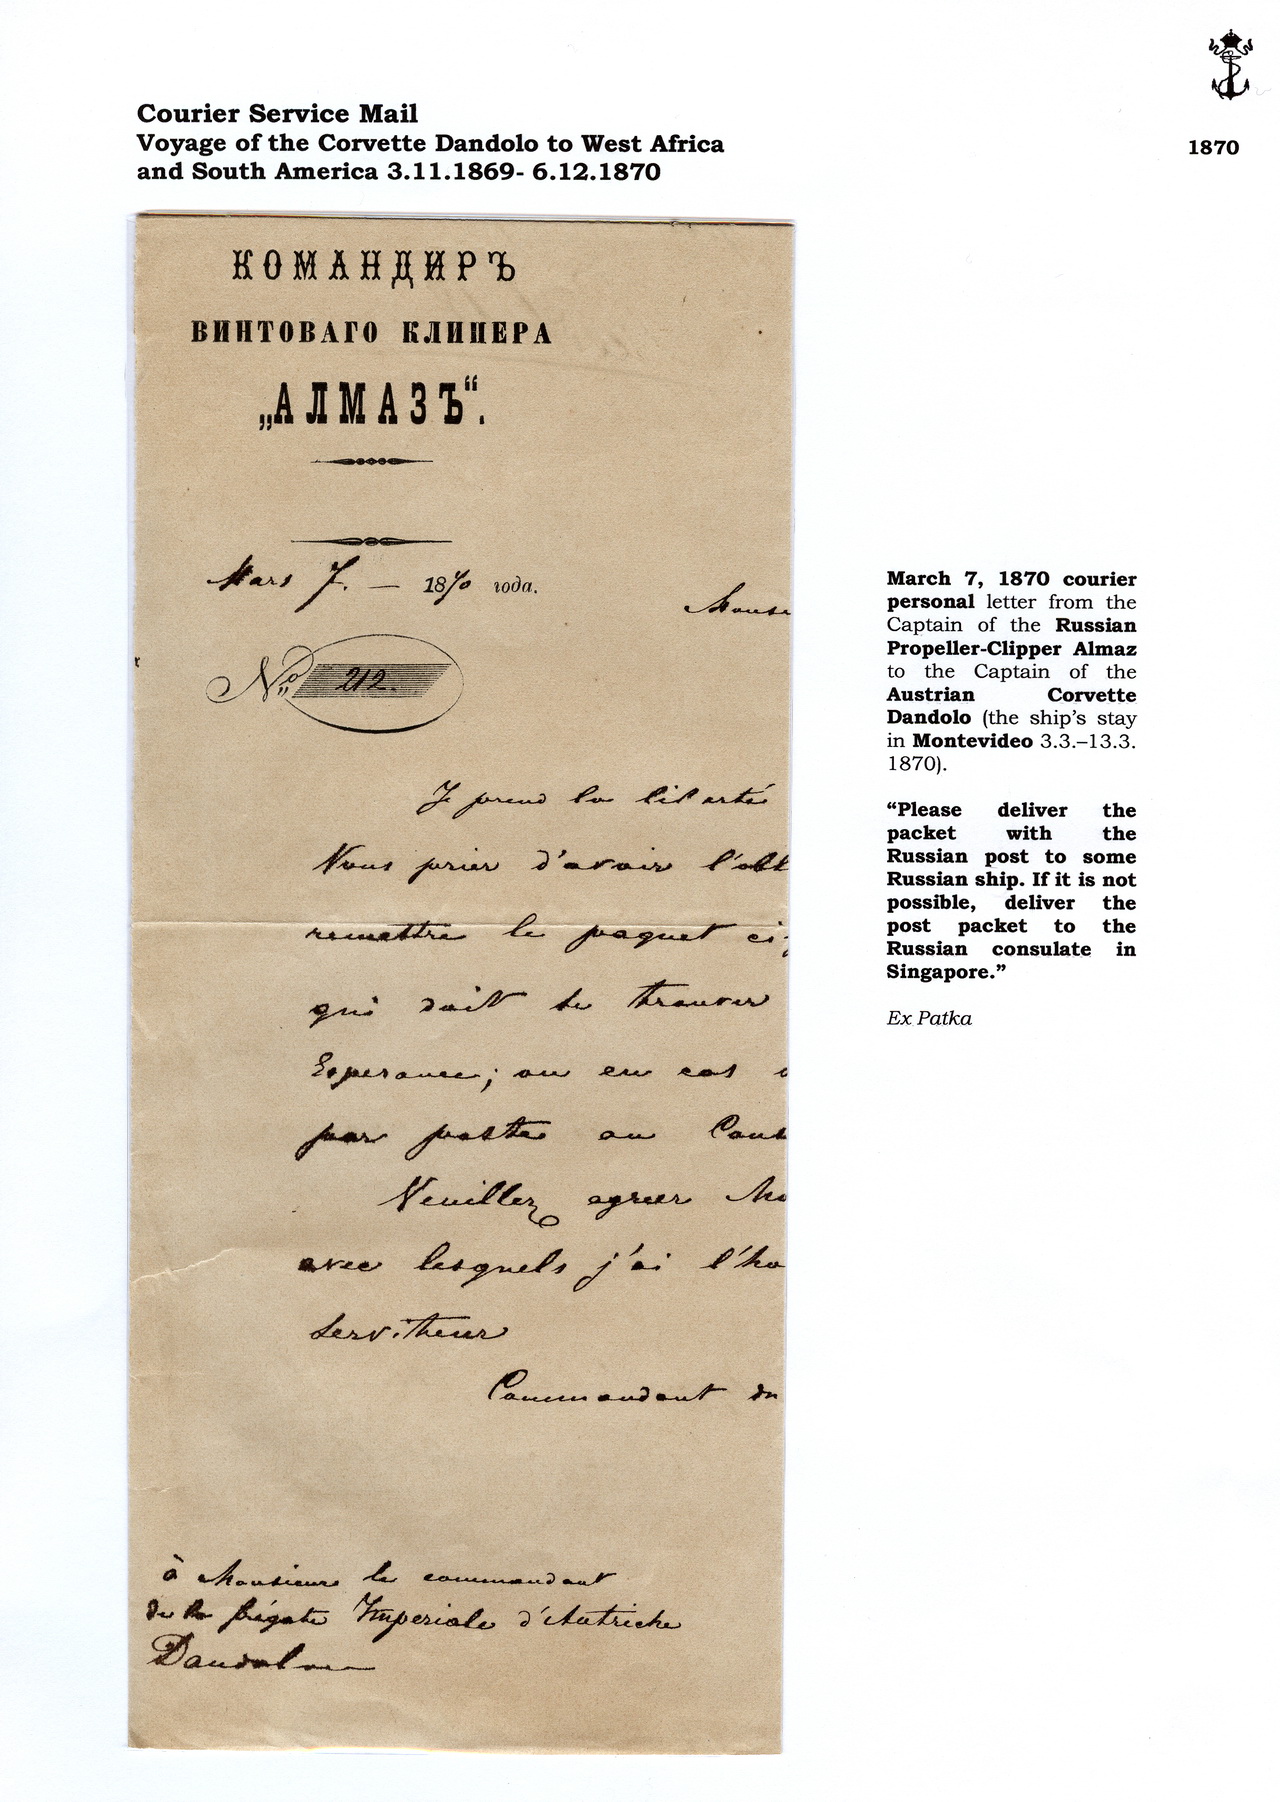 Courier Service Mail
Voyage of the Corvette Dandolo to West Africa
and South America 3.11.1869- 6.12.1870
1870
КОМАНДИРЪ
ВИНТОВАГО КЛИПЕРА
„АЛМАЗЪ“.
Mars 7. — 1870 года.
Monsi
№ 212.
Je prend la liberté
Vous prier d'avoir l'obl
remettre le paquet ci
qui doit se trouver
Esperance; ou en cas
par poste au Cons
Veuillez agréer Mo
avec lesquels j'ai l'ho
serviteur
Commandant du
à Monsieur le commandant
de la frégate Imperiale d'Autriche
Dandolo
March 7, 1870 courier
personal letter from the
Captain of the Russian
Propeller-Clipper Almaz
to the Captain of the
Austrian Corvette
Dandolo (the ship's stay
in Montevideo 3.3.–13.3.
1870).
“Please deliver the
packet with the
Russian post to some
Russian ship. If it is not
possible, deliver the
post packet to the
Russian consulate in
Singapore.”
Ex Patka